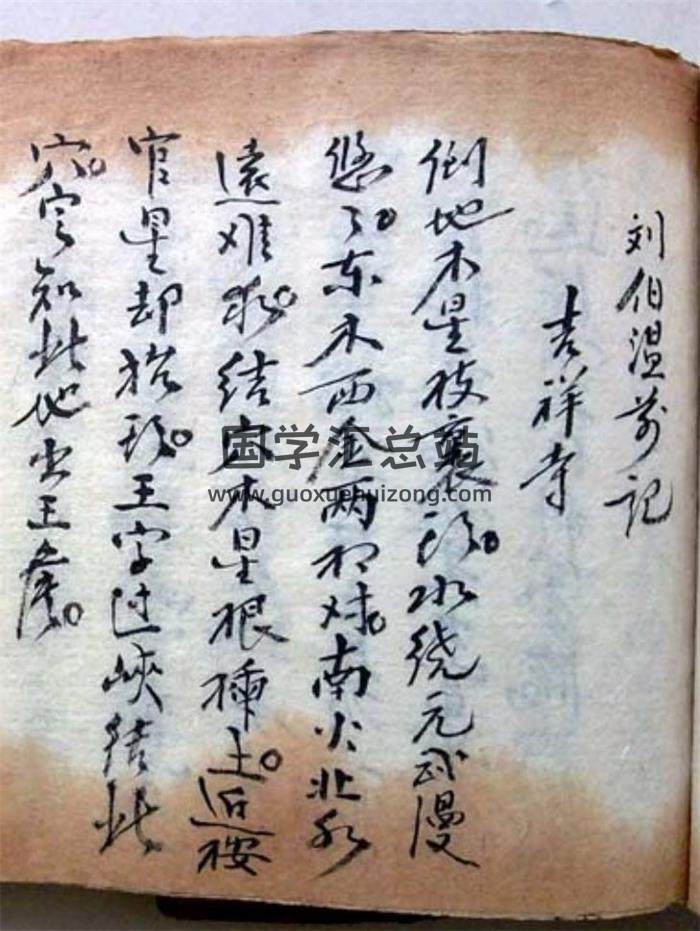 刘伯温前记
吉祥寺
倒地木星枝裹。水绕元武漫
悠々。东木西金两相对。南火北水
遠难求。结穴木星根插土。近桉
官星却。王字过峡结此
穴。定知此地出王侯。
国学汇总站
www.guoxuehuizong.com